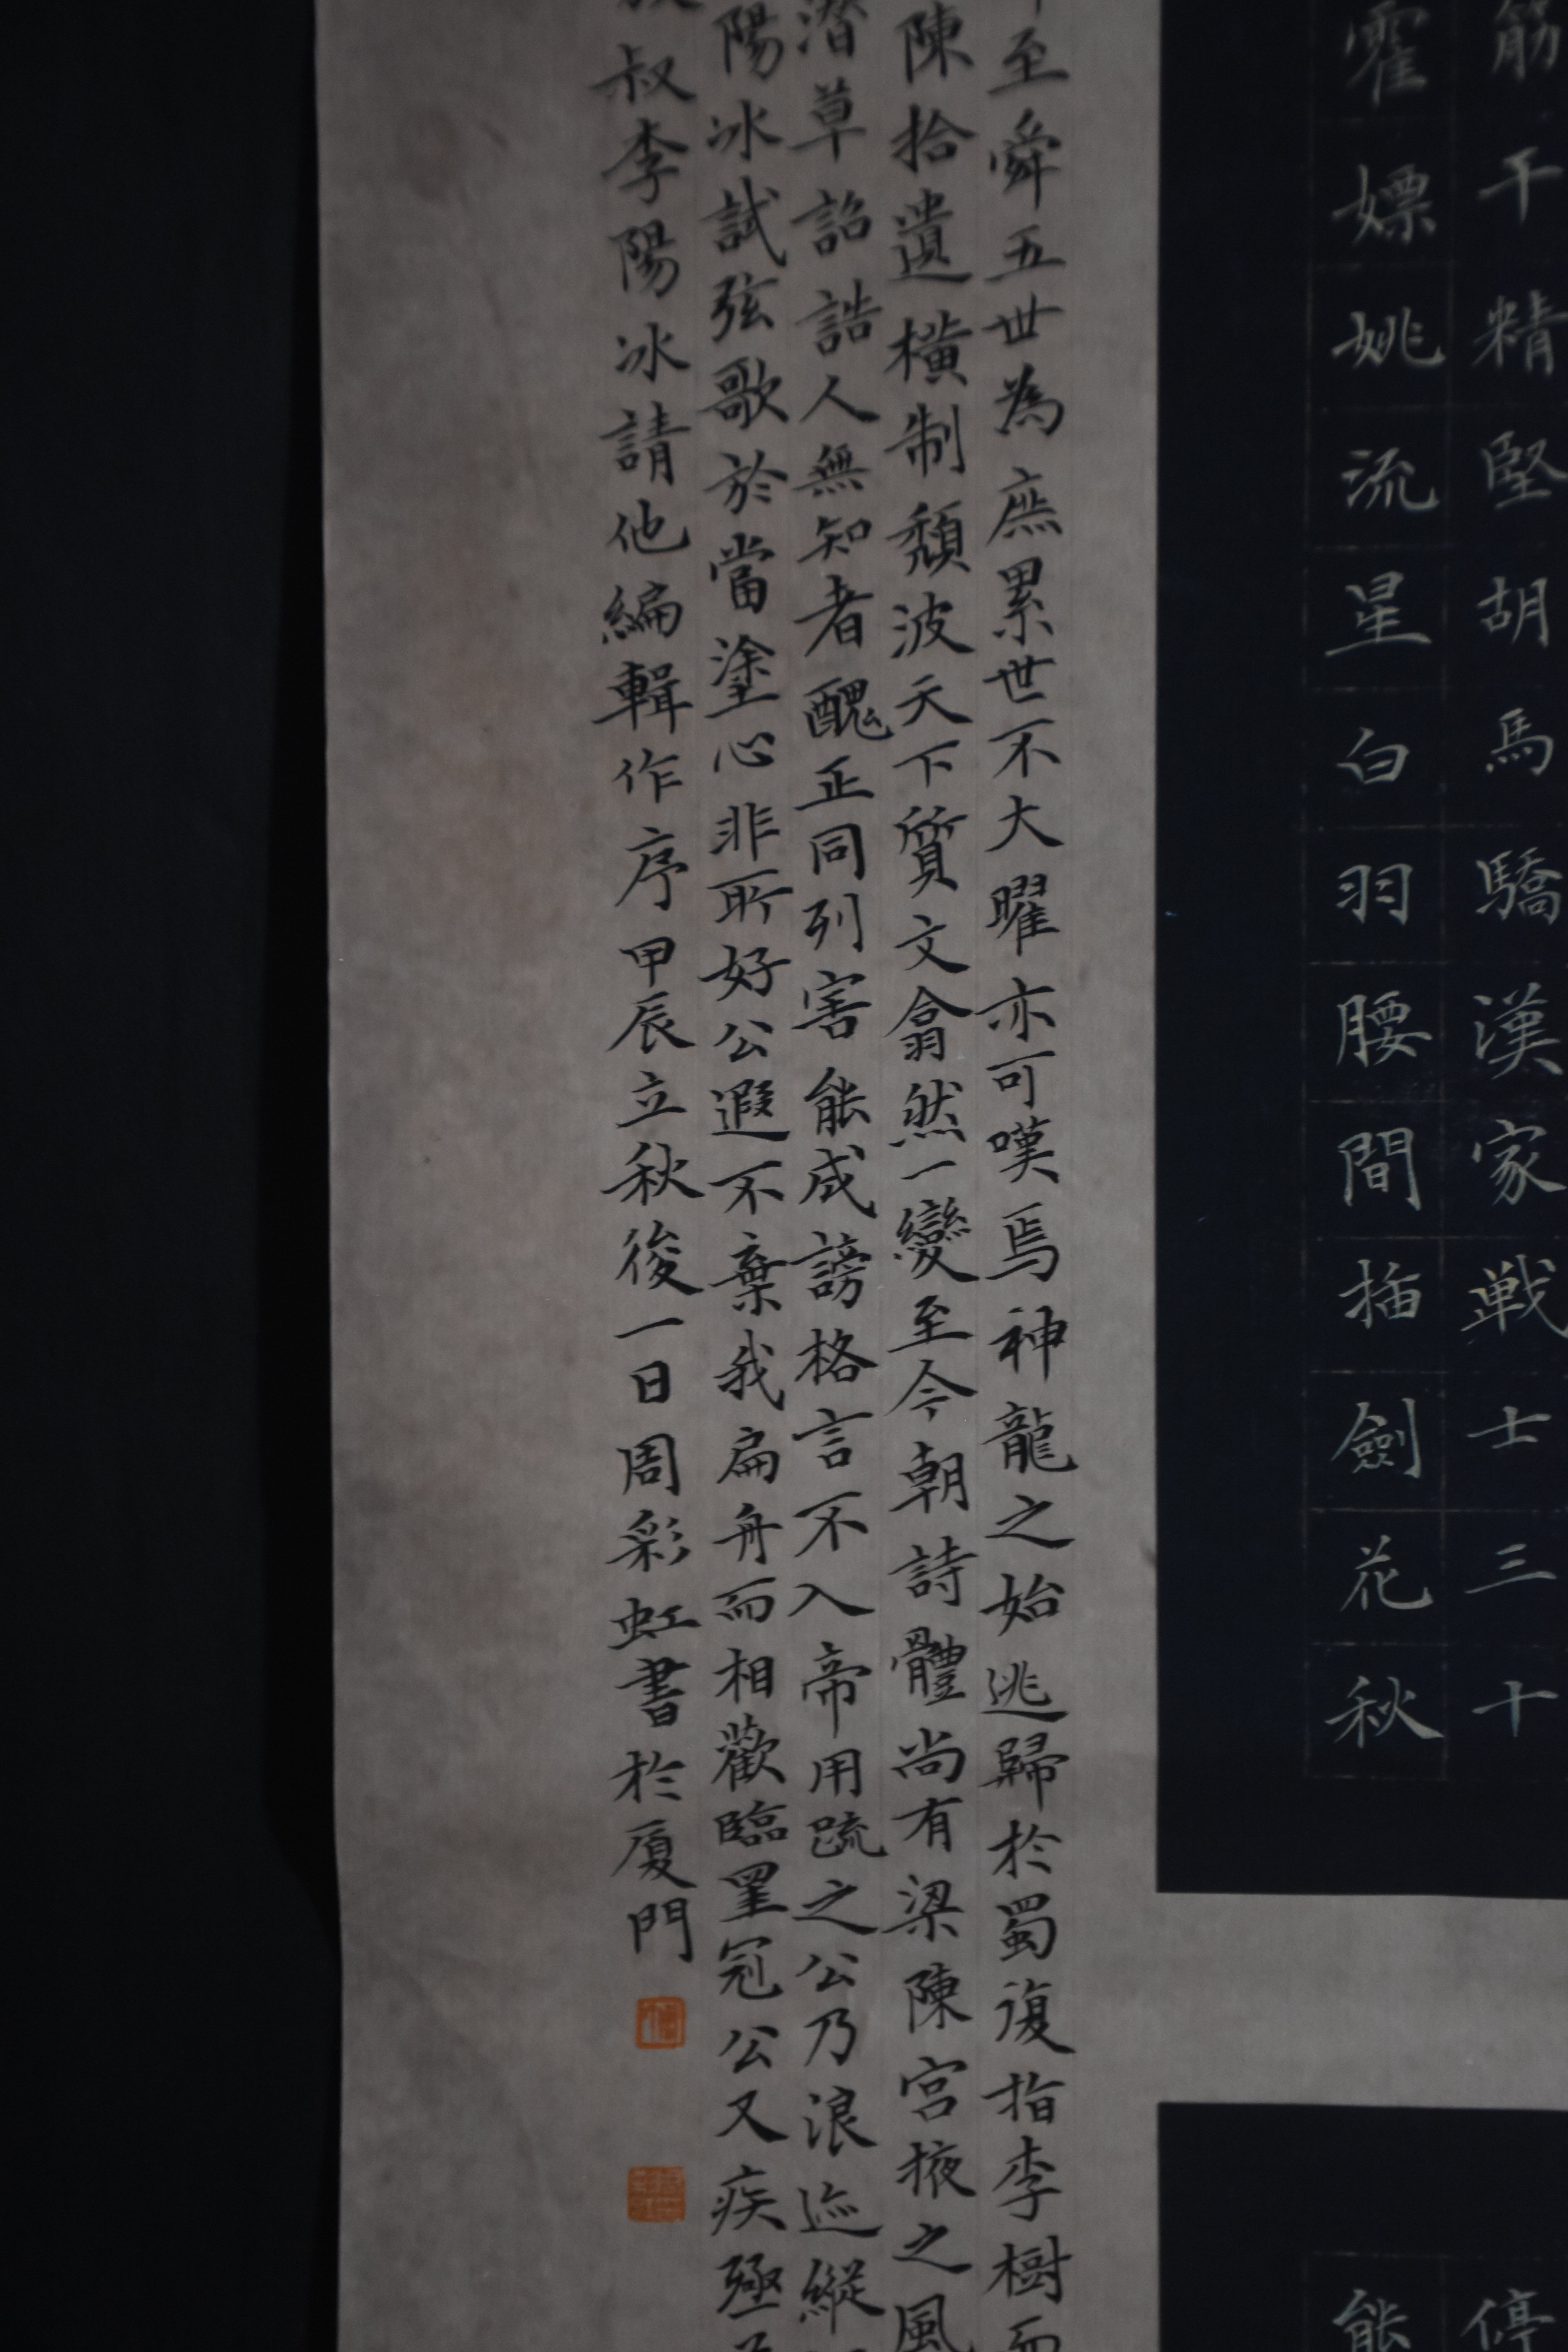 筋干精堅胡馬驕漢家戦士三十
霍嫖姚流星白羽腰間插劍花秋
停
能
至舜五世為庶累世不大曜亦可嘆焉神龍之始逃歸於蜀復指李樹而
陳拾遺橫制頹波天下質文翕然一變至今朝詩體尚有梁陳宮掖之風
潛草詔誥人無知者醜正同列害能成謗格言不入帝用疏之公乃浪迹縱
陽冰試弦歌於當塗心非所好公遐不棄我扁舟而相歡臨罣冠公又疾亟
叔李陽冰請他編輯作序甲辰立秋後一日周彩虹書於厦門